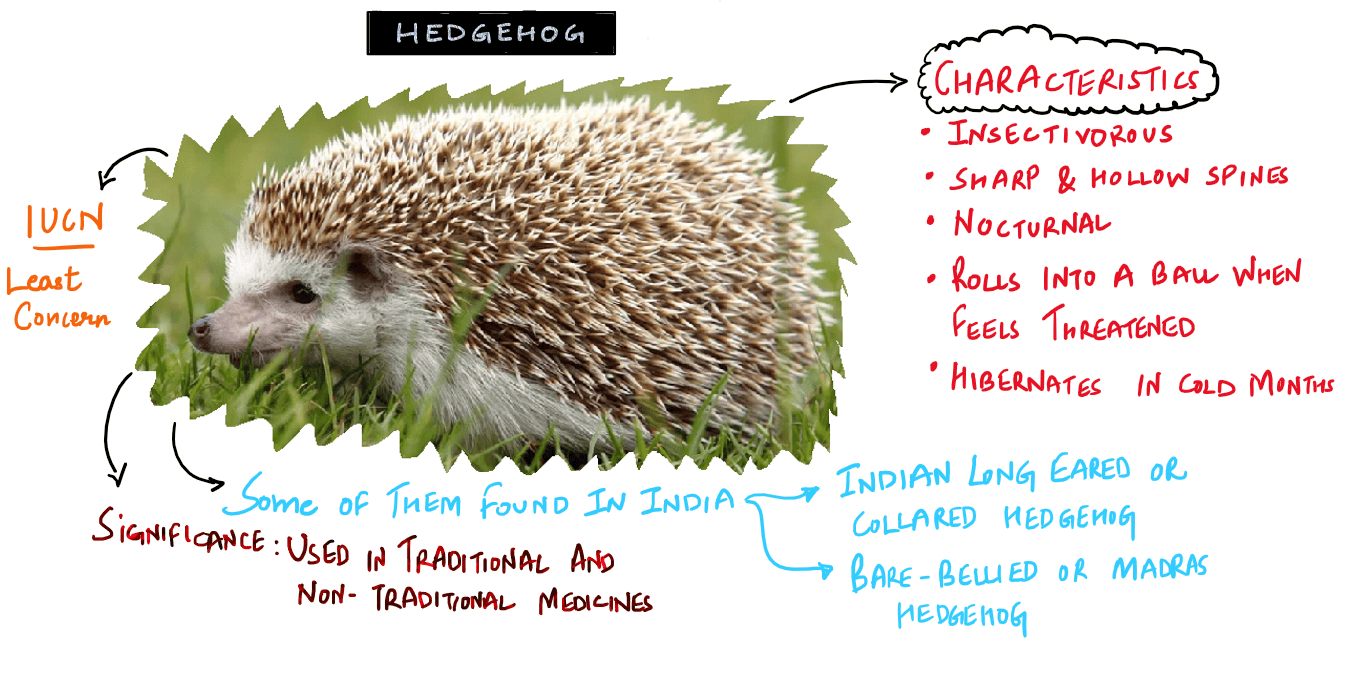 HEDGEHOG
CHARACTERISTICS
• INSECTIVOROUS
• SHARP & HOLLOW SPINES
• NOCTURNAL
• ROLLS INTO A BALL WHEN
FEELS THREATENED
• HIBERNATES IN COLD MONTHS
IUCN
Least
Concern
Some of Them Found In India
INDIAN LONG EARED OR
COLLARED HEDGEHOG
BARE-BELLIED OR MADRAS
HEDGEHOG
SIGNIFICANCE: USED IN TRADITIONAL AND
NON-TRADITIONAL MEDICINES